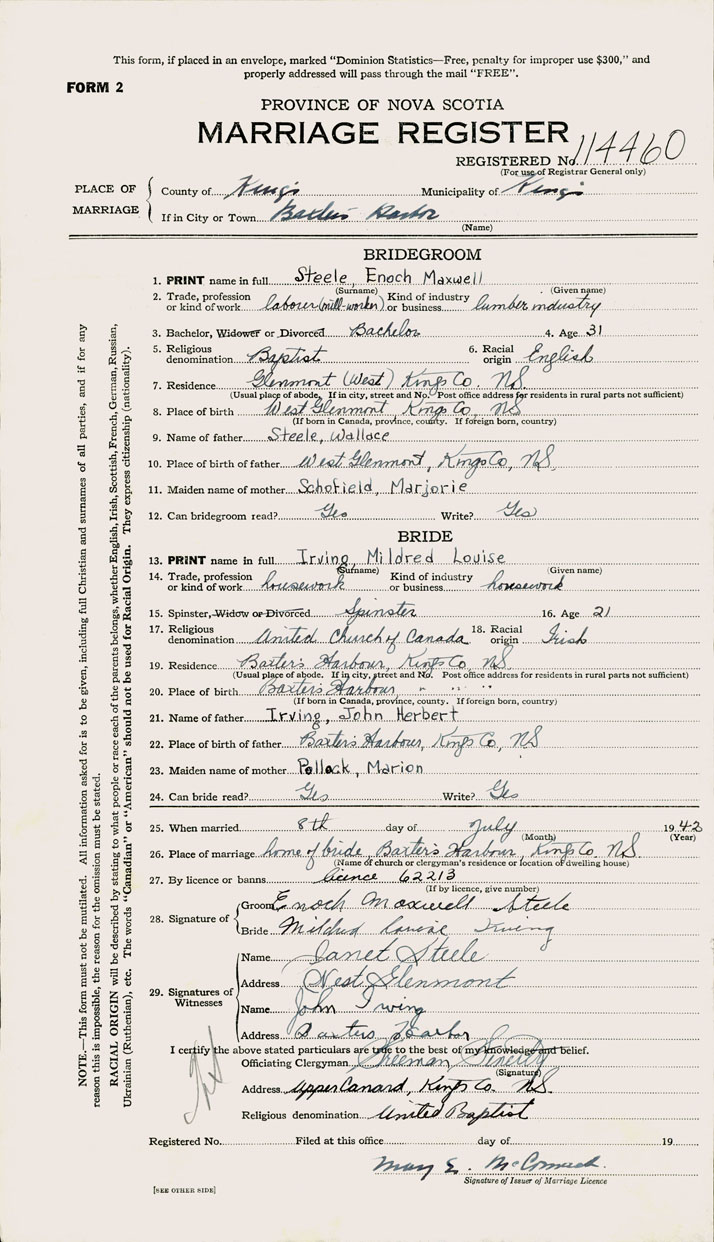 This form, if placed in an envelope, marked "Dominion Statistics—Free, penalty for improper use $300," and
properly addressed will pass through the mail "FREE".
FORM 2
PROVINCE OF NOVA SCOTIA
MARRIAGE REGISTER
REGISTERED No. 114460
(For use of Registrar General only)
PLACE OF MARRIAGE
County of Kings Municipality of Kings
If in City or Town Baxters Harbor
(Name)
BRIDEGROOM
1. PRINT name in full Steele, Enoch Maxwell
(Surname) (Given name)
2. Trade, profession or kind of work labour (mill-worker) Kind of industry or business lumber industry
3. Bachelor, Widower or Divorced Bachelor 4. Age 31
5. Religious denomination Baptist 6. Racial origin English
7. Residence Glenmont (West) Kings Co. N.S.
(Usual place of abode. If in city, street and No. Post office address for residents in rural parts not sufficient)
8. Place of birth West Glenmont, Kings Co, NS
(If born in Canada, province, county. If foreign born, country)
9. Name of father Steele, Wallace
10. Place of birth of father West Glenmont, Kings Co, NS.
11. Maiden name of mother Schofield, Marjorie
12. Can bridegroom read? Yes Write? Yes
BRIDE
13. PRINT name in full Irving, Mildred Louise
(Surname) (Given name)
14. Trade, profession or kind of work housework Kind of industry or business housework
15. Spinster, Widow or Divorced Spinster 16. Age 21
17. Religious denomination United Church of Canada 18. Racial origin Irish
19. Residence Baxter's Harbour, Kings Co, N.S.
(Usual place of abode. If in city, street and No. Post office address for residents in rural parts not sufficient)
20. Place of birth Baxter's Harbour, " " " "
(If born in Canada, province, county. If foreign born, country)
21. Name of father Irving, John Herbert
22. Place of birth of father Baxter's Harbour, Kings Co, NS
23. Maiden name of mother Pollock, Marion
24. Can bride read? Yes Write? Yes
25. When married 8th day of July 1942
(Month) (Year)
26. Place of marriage home of bride, Baxter's Harbour, Kings Co. N.S.
(Name of church or clergyman's residence or location of dwelling house)
27. By licence or banns licence 62213
(If by licence, give number)
28. Signature of
Groom Enoch Maxwell Steele
Bride Mildred Louise Irving
29. Signatures of Witnesses
Name Janet Steele
Address West Glenmont
Name John Irving
Address Baxters Harbor
I certify the above stated particulars are true to the best of my knowledge and belief.
Officiating Clergyman Freeman Fenerty
(Signature)
Address Upper Canard, Kings Co. N.S.
Religious denomination United Baptist
Registered No. Filed at this office day of 19
Mary E. McCormick
Signature of Issuer of Marriage Licence
[SEE OTHER SIDE]
NOTE.—This form must not be mutilated. All information asked for is to be given, including full Christian and surnames of all parties, and if for any
reason this is impossible, the reason for the omission must be stated.
RACIAL ORIGIN will be described by stating to what people or race each of the parents belongs, whether English, Irish, Scottish, French, German, Russian,
Ukrainian (Ruthenian), etc. The words "Canadian" or "American" should not be used for Racial Origin. They express citizenship (nationality).